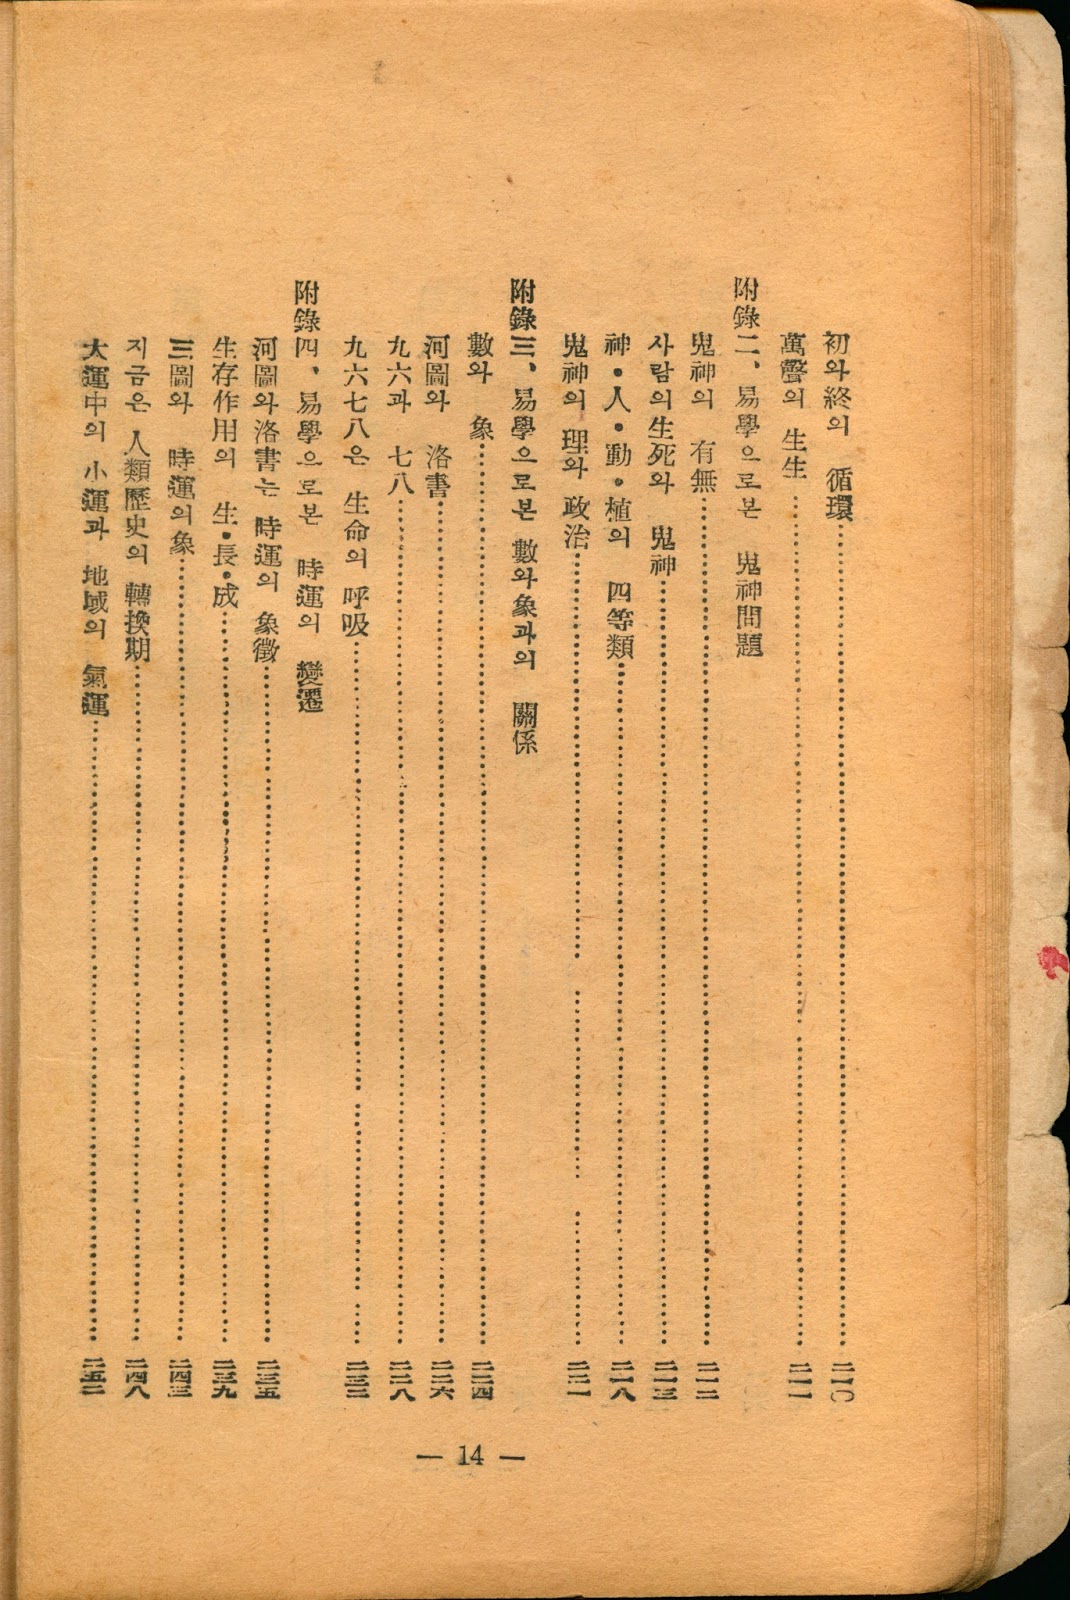 初와終의 循環……二一〇
萬聲의 生生……二一一
附錄二、易學으로본 鬼神問題
鬼神의 有無……二一二
사람의生死와 鬼神……二一三
神•人•動•植의 四等類……二一八
鬼神의 理와 政治……二二一
附錄三、易學으로본 數와象과의 關係
數와 象……二二四
河圖와 洛書……二二六
九六과 七八……二二八
九六七八은 生命의 呼吸……二三二
附錄四、易學으로본 時運의 變遷
河圖와洛書는 時運의 象徵……二三五
生存作用의 生•長•成……二三九
三圖와 時運의象……二四三
지금은 人類歷史의 轉換期……二四八
大運中의 小運과 地域의 氣運……二五二
— 14 —